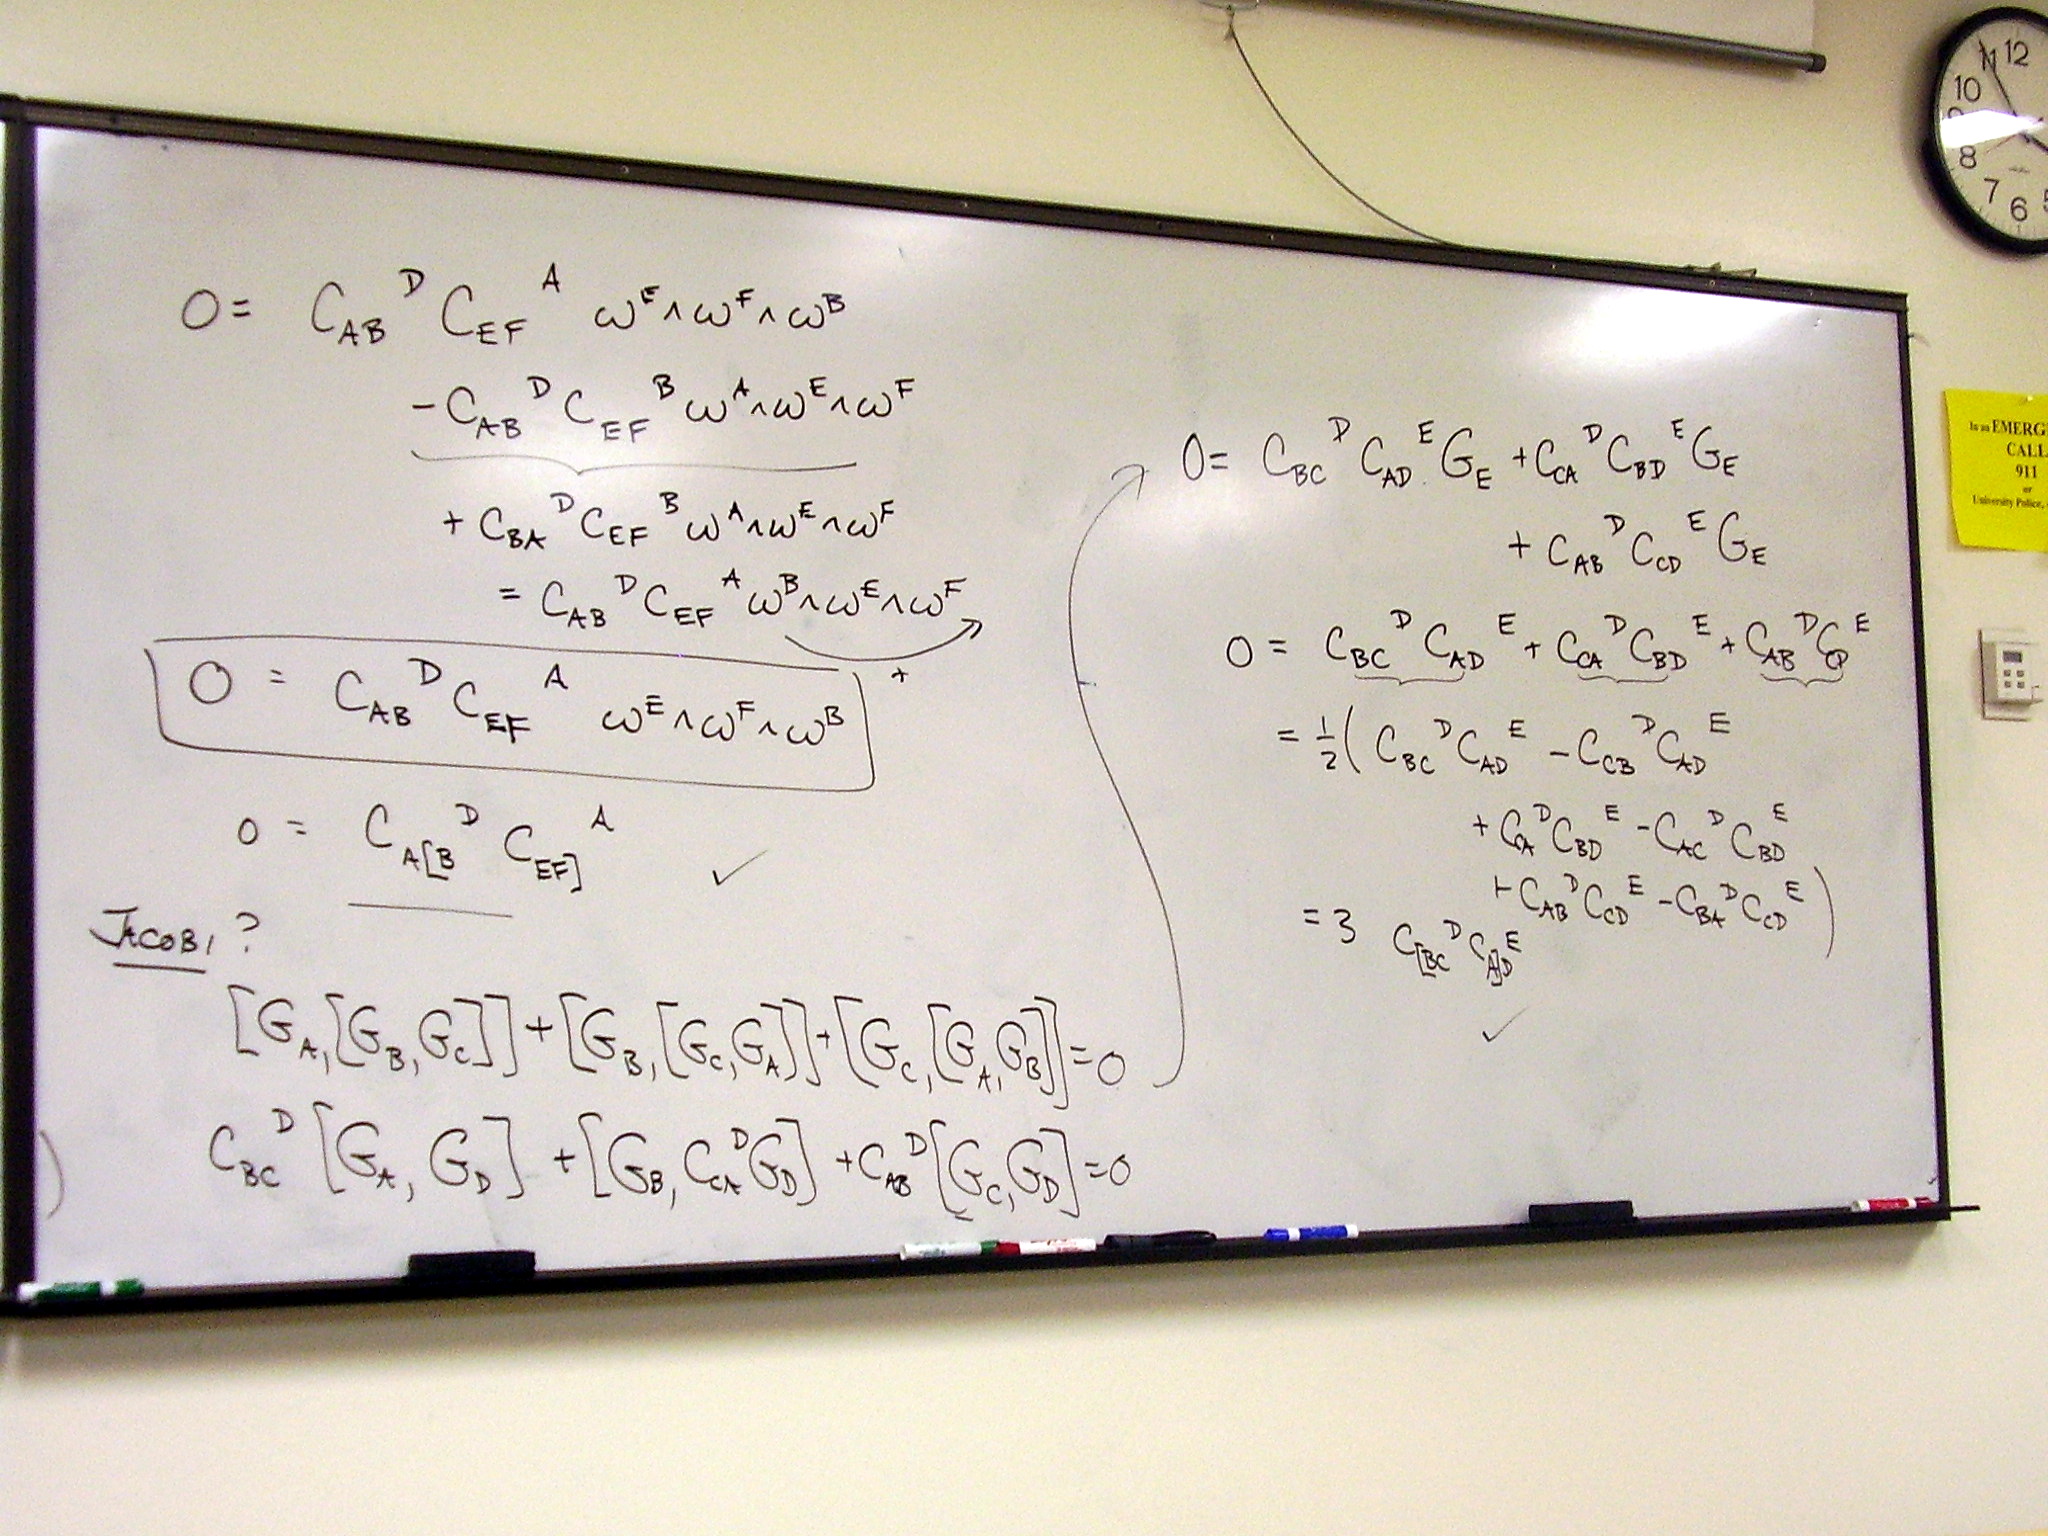 0 = C_{AB}^D C_{EF}^A ω^E ∧ ω^F ∧ ω^B
- C_{AB}^D C_{EF}^B ω^A ∧ ω^E ∧ ω^F
+ C_{BA}^D C_{EF}^B ω^A ∧ ω^E ∧ ω^F
= C_{AB}^D C_{EF}^A ω^B ∧ ω^E ∧ ω^F
+
0 = C_{AB}^D C_{EF}^A ω^E ∧ ω^F ∧ ω^B
0 = C_{A[B}^D C_{EF]}^A ✓
JACOBI ?
[G_A, [G_B, G_C]] + [G_B, [G_C, G_A]] + [G_C, [G_A, G_B]] = 0
C_{BC}^D [G_A, G_D] + [G_B, C_{CA}^D G_D] + C_{AB}^D [G_C, G_D] = 0
0 = C_{BC}^D C_{AD}^E G_E + C_{CA}^D C_{BD}^E G_E
+ C_{AB}^D C_{CD}^E G_E
0 = C_{BC}^D C_{AD}^E + C_{CA}^D C_{BD}^E + C_{AB}^D C_{CD}^E
= 1/2 ( C_{BC}^D C_{AD}^E - C_{CB}^D C_{AD}^E
+ C_{CA}^D C_{BD}^E - C_{AC}^D C_{BD}^E
+ C_{AB}^D C_{CD}^E - C_{BA}^D C_{CD}^E )
= 3 C_{[BC}^D C_{A]D}^E
✓
11 12
10
9
8
7
6
5
In an EMERG
CALL
911
or
University Police,